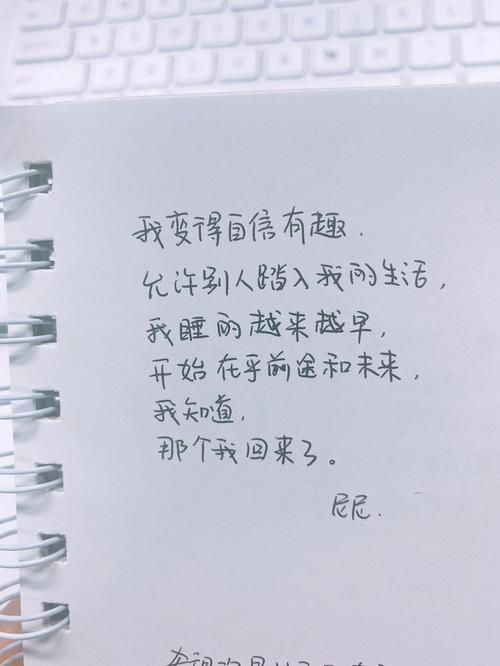 我变得自信有趣.
允许别人踏入我的生活,
我睡的越来越早,
开始在乎前途和未来,
我知道,
那个我回来了。
尼尼.